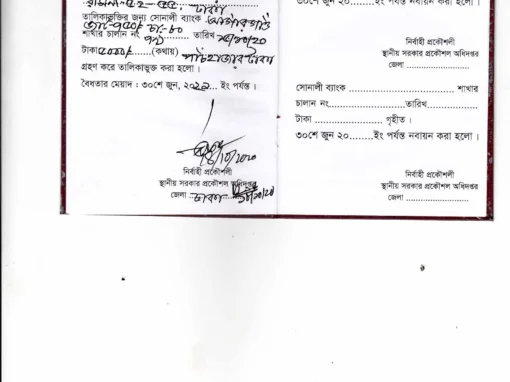 তালিকাভুক্তির জন্য সোনালী ব্যাংক
শাখার চালান নং ৭৯ তারিখ ১৫/১০/২০
টাকা ৫০০০/ (কথায়) পাঁচহাজার টাকা
গ্রহণ করে তালিকাভুক্ত করা হলো ।
বৈধতার মেয়াদ : ৩০শে জুন, ২০২১... ইং পর্যন্ত ।
নির্বাহী প্রকৌশলী
স্থানীয় সরকার প্রকৌশল অধিদপ্তর
জেলা ..ঢাকা
৩০শে জুন ২০........ইং পর্যন্ত নবায়ন করা হলো ।
নির্বাহী প্রকৌশলী
স্থানীয় সরকার প্রকৌশল অধিদপ্তর
জেলা ..........................
সোনালী ব্যাংক .................................... শাখার
চালান নং..........................তারিখ..................
টাকা .......................... গৃহীত ।
৩০শে জুন ২০........ইং পর্যন্ত নবায়ন করা হলো ।
নির্বাহী প্রকৌশলী
স্থানীয় সরকার প্রকৌশল অধিদপ্তর
জেলা ..........................